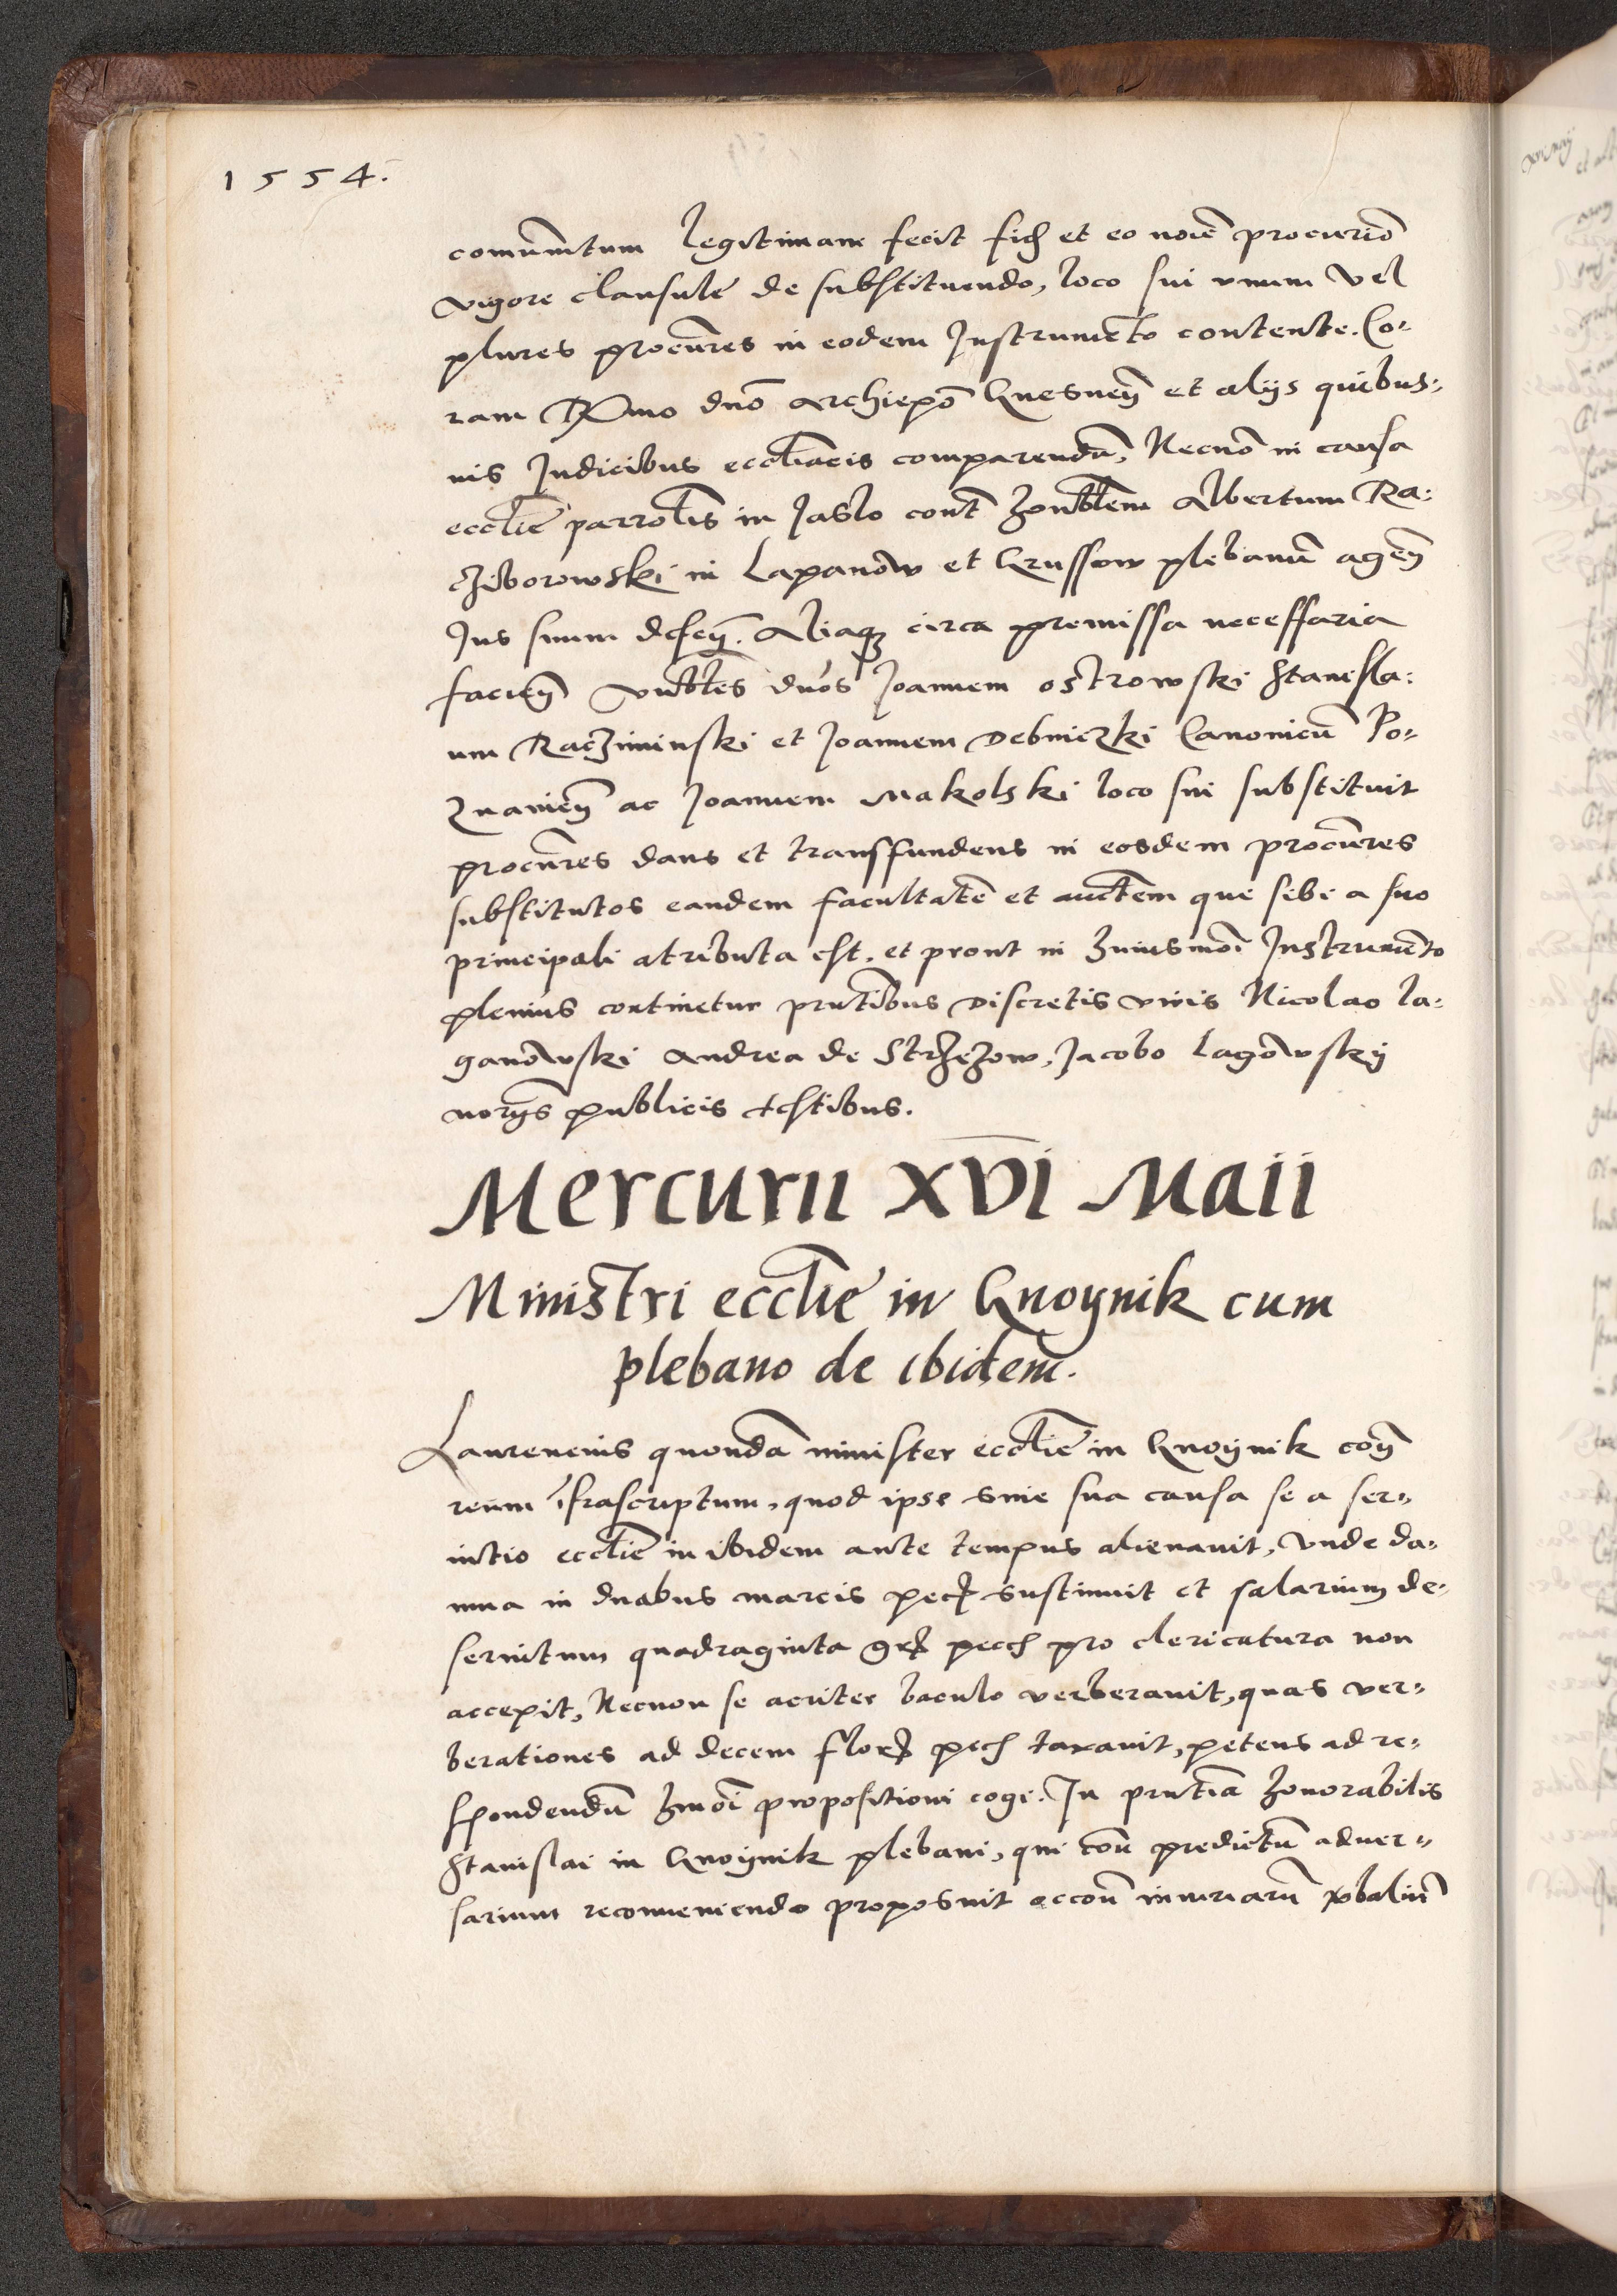 1554.
comunītum legitimam fecit fidȝ et eo noīe procuriō
vigore clausule de substituendo, loco sui vnum vel
plures procūres in eodem Instrumēto contente. Co-
ram Rmo dnō Archiepō Gnesneñ et alijs quibus-
uis Judicibus eccliācis comparendū, Necnō in causa
eccliē parrolīs in Jaslo cont̄ honblēm Albertum Ra-
cziborowski in Lapanow et Grussow plebanū ageñ
Jus suum defeñ. Aliaqȝ circa premissa necessaria
facieñ vnblēs dnōs Joannem Ostrowski Stanisla-
um Racziminski et Joannem Debniczki Canonicū Po-
znanieñ ac Joannem Makolski loco sui substituit
procūres dans et transfundens in eosdem procūres
substitutos eandem facultatē et auctēm que sibi a suo
principali atributa est. et prout in huiusmōi Instrumēto
plenius continetur prntībus Discretis viris Nicolao La-
ganowski Andrea de Strzezow, Jacobo Lagowskij
norijs publicis testibus.
Mercurii XVI Maii
Ministri eccliē in Gnoynik cum
plebano de ibidem.
Laurencius quondā minister eccliē in Gnoijnik coñ
reum īfrascriptum, quod ipse sine sua causa se a ser-
uitio eccliē in ibidem ante tempus alienauit, vnde da-
mna in duabus marcis pecꝝ sustinuit et salarium de-
seruitum quadraginta grꝝ pecch pro clericatura non
accepit, Necnon se acriter baculo verberauit, quas ver-
berationes ad decem florꝝ pech taxauit, petens ad re-
spondendū hmōi propositioni cogi. In prntīa honorabilis
Stanislai in Gnoijnik plebani, qui coñ predictū aduer-
sarium reconueniendo proposuit accoñ iniuriarū vbaliū